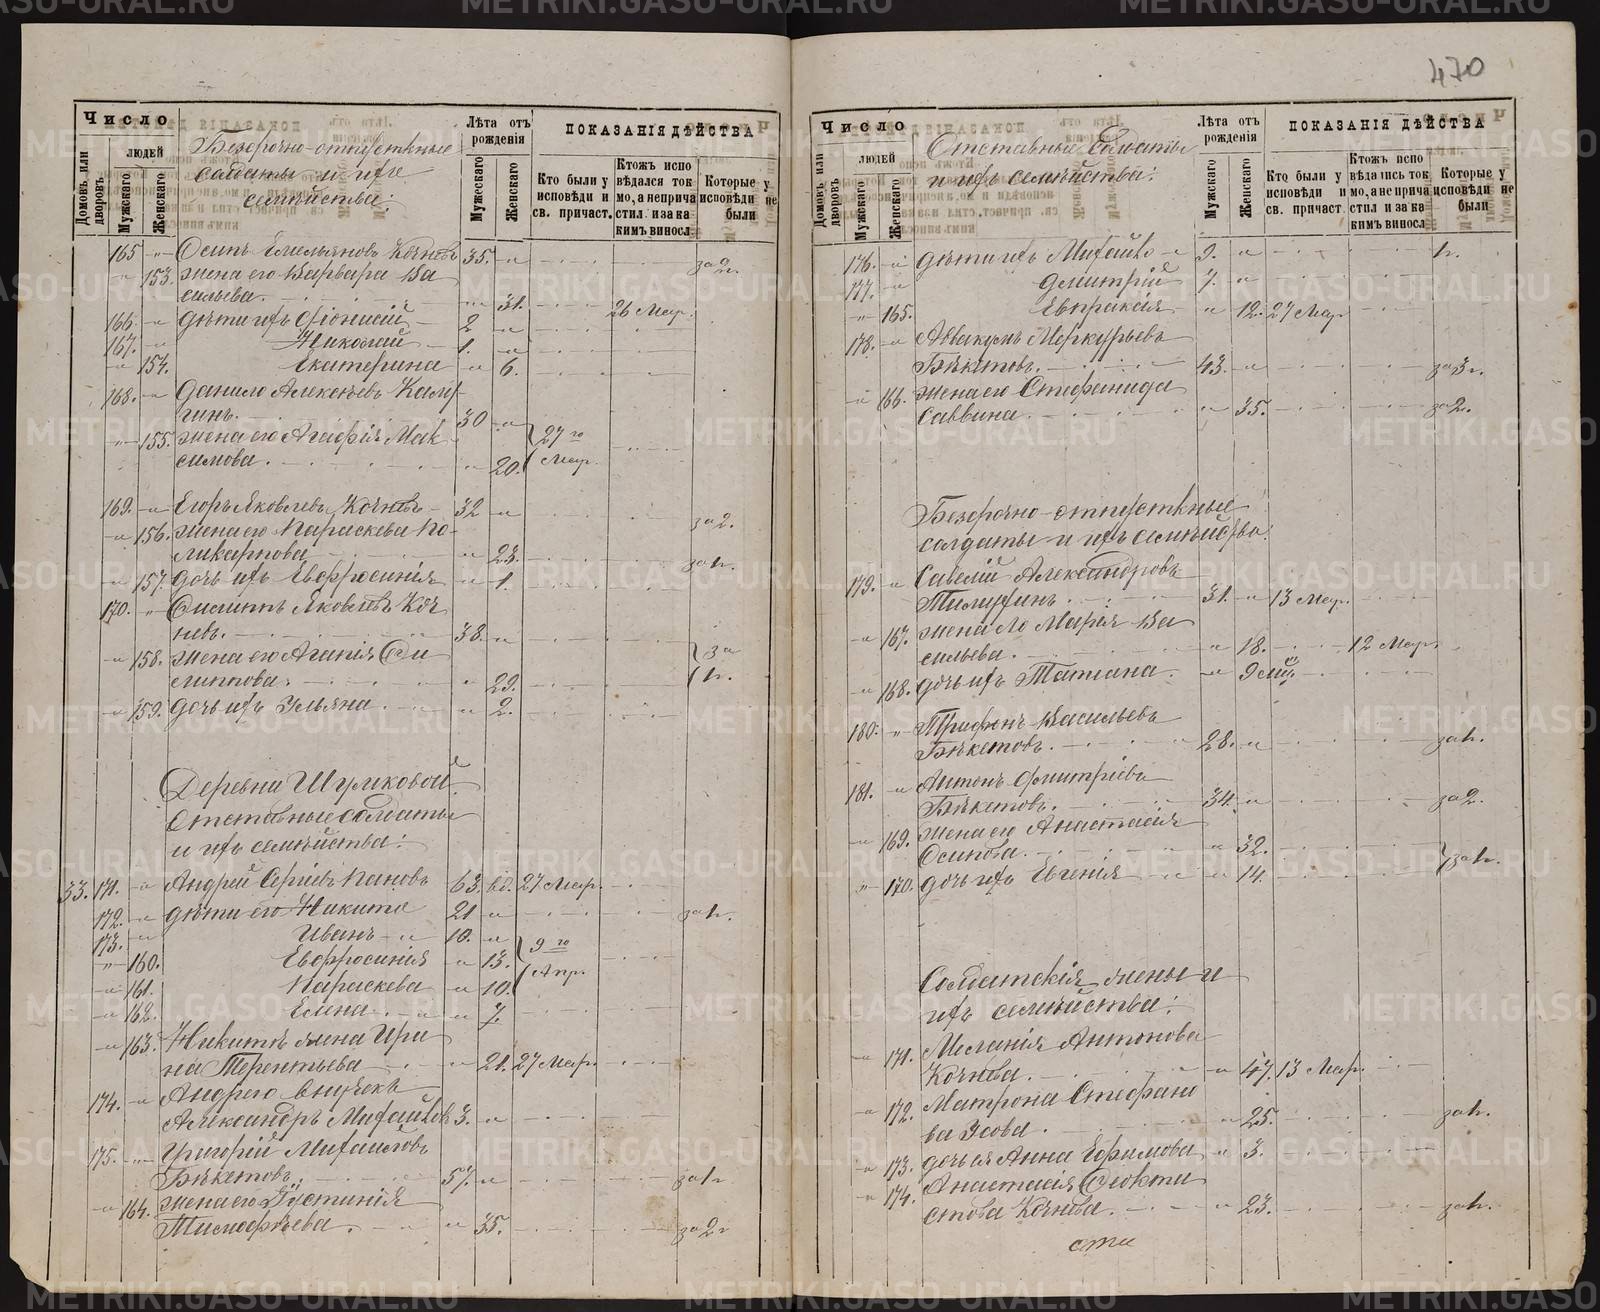 470
Число
Безсрочно-отпускные
солдаты и ихъ
семейства:
Лѣта отъ рожденія
ПОКАЗАНІЯ ДѢЙСТВА
Домовъ или дворовъ
людей
Мужскаго
Женскаго
Мужескаго
Женскаго
Кто были у исповѣди и св. причаст.
Ктожъ испо вѣдался ток мо, а неприча стил и за ка кимъ виносл.
Которые у исповѣди не были
165 „ Осипъ Емельяновъ Кочневъ 35. „ за 2 г.
„ 153. жена его Варвара Ва
сильева. „ 31. 26 Мар.
166. „ дѣти ихъ Діонисій 2 „
167. „ Николай 1. „
„ 154. Екатерина „ 6.
168. „ Данило Алексѣевъ
30 „
„ 155. жена его Агафія Мак
симова. „ 20. 27го Мар.
169. „ Егоръ Яковлевъ Кочневъ 32 „ за 2.
„ 156. жена его Параскева По-
ликарпова „ 23. за 1 г.
„ 157. дочь ихъ Евфросинія „ 1.
170. „ Филиппъ Яковлевъ Коч
невъ. 38. „
„ 158. жена его Агапія Фи
липпова. „ 29. за 1 г.
„ 159. дочь ихъ Ульяна. „ 2.
Деревни Шуляковой
Отставные солдаты
и ихъ семейства:
33. 171. „ Андрей Сергіевъ Пановъ 63. вд. 27 Мар.
172. „ дѣти его Никита 21 „ за 1 г.
173. „ Иванъ 10. „
„ 160. Евфросинія „ 13. 9го Апр.
„ 161. Параскева „ 10.
„ 162. Елена „ 7.
„ 163. Никиты жена Ири
на Терентьева „ 21. 27 Мар.
174. „ Андрея внучекъ
Александръ Михайловъ 3. „
175. „ Григорій Михайловъ
Бѣкетовъ. 57. „ за 1 г.
„ 164. жена его Густинія
Тимофѣева. „ 35. за 2 г.
Число
Отставные солдаты
и ихъ семейства:
Лѣта отъ рожденія
ПОКАЗАНІЯ ДѢЙСТВА
Домовъ или дворовъ
людей
Мужскаго
Женскаго
Мужскаго
Женскаго
Кто были у исповѣди и св. причаст.
Ктожъ испо вѣдались ток мо, а не прича стил и за ка кимъ виносл
Которые у исповѣди не были
176. „ дѣти ихъ Михайло 9. „ 1 г.
177. „ Дмитрій 7. „
„ 165. Евпраксія „ 12. 27 Мар
178. „ Аввакумъ Меркурьевъ
Бѣкетовъ. 43. „ за 3 г.
„ 166. жена его Стефанида
Саввина. „ 35. за 2.
Безсрочно-отпускные
солдаты и ихъ семейства:
179. „ Савелій Александровъ
31. „ 13 Мар.
„ 167. жена его Марія Ва
сильева. „ 18. 12 Мар.
„ 168. дочь ихъ Татіана. „ 9 мѣц.
180. „ Трифонъ Васильевъ
Бѣкетовъ. 28. „ за 1 г.
181. „ Антонъ Дмитріевъ
Бѣкетовъ. 34. „ за 2.
„ 169. жена его Анастасія
Осипова. „ 32. за 1 г.
„ 170. дочь ихъ Евгенія „ 14.
Солдатскія жены и
ихъ семейства:
„ 171. Меланія Антонова
Кочнева. „ 47. 13 Мар.
„ 172. Матрона Стефано
ва Зсова. „ 25. за 1 г.
„ 173. дочь ея Анна Ефимова „ 3.
„ 174. Анастасія Феокти
стова Кочнева. „ 23. за 1 г.
METRIKI.GASO-URAL.RU